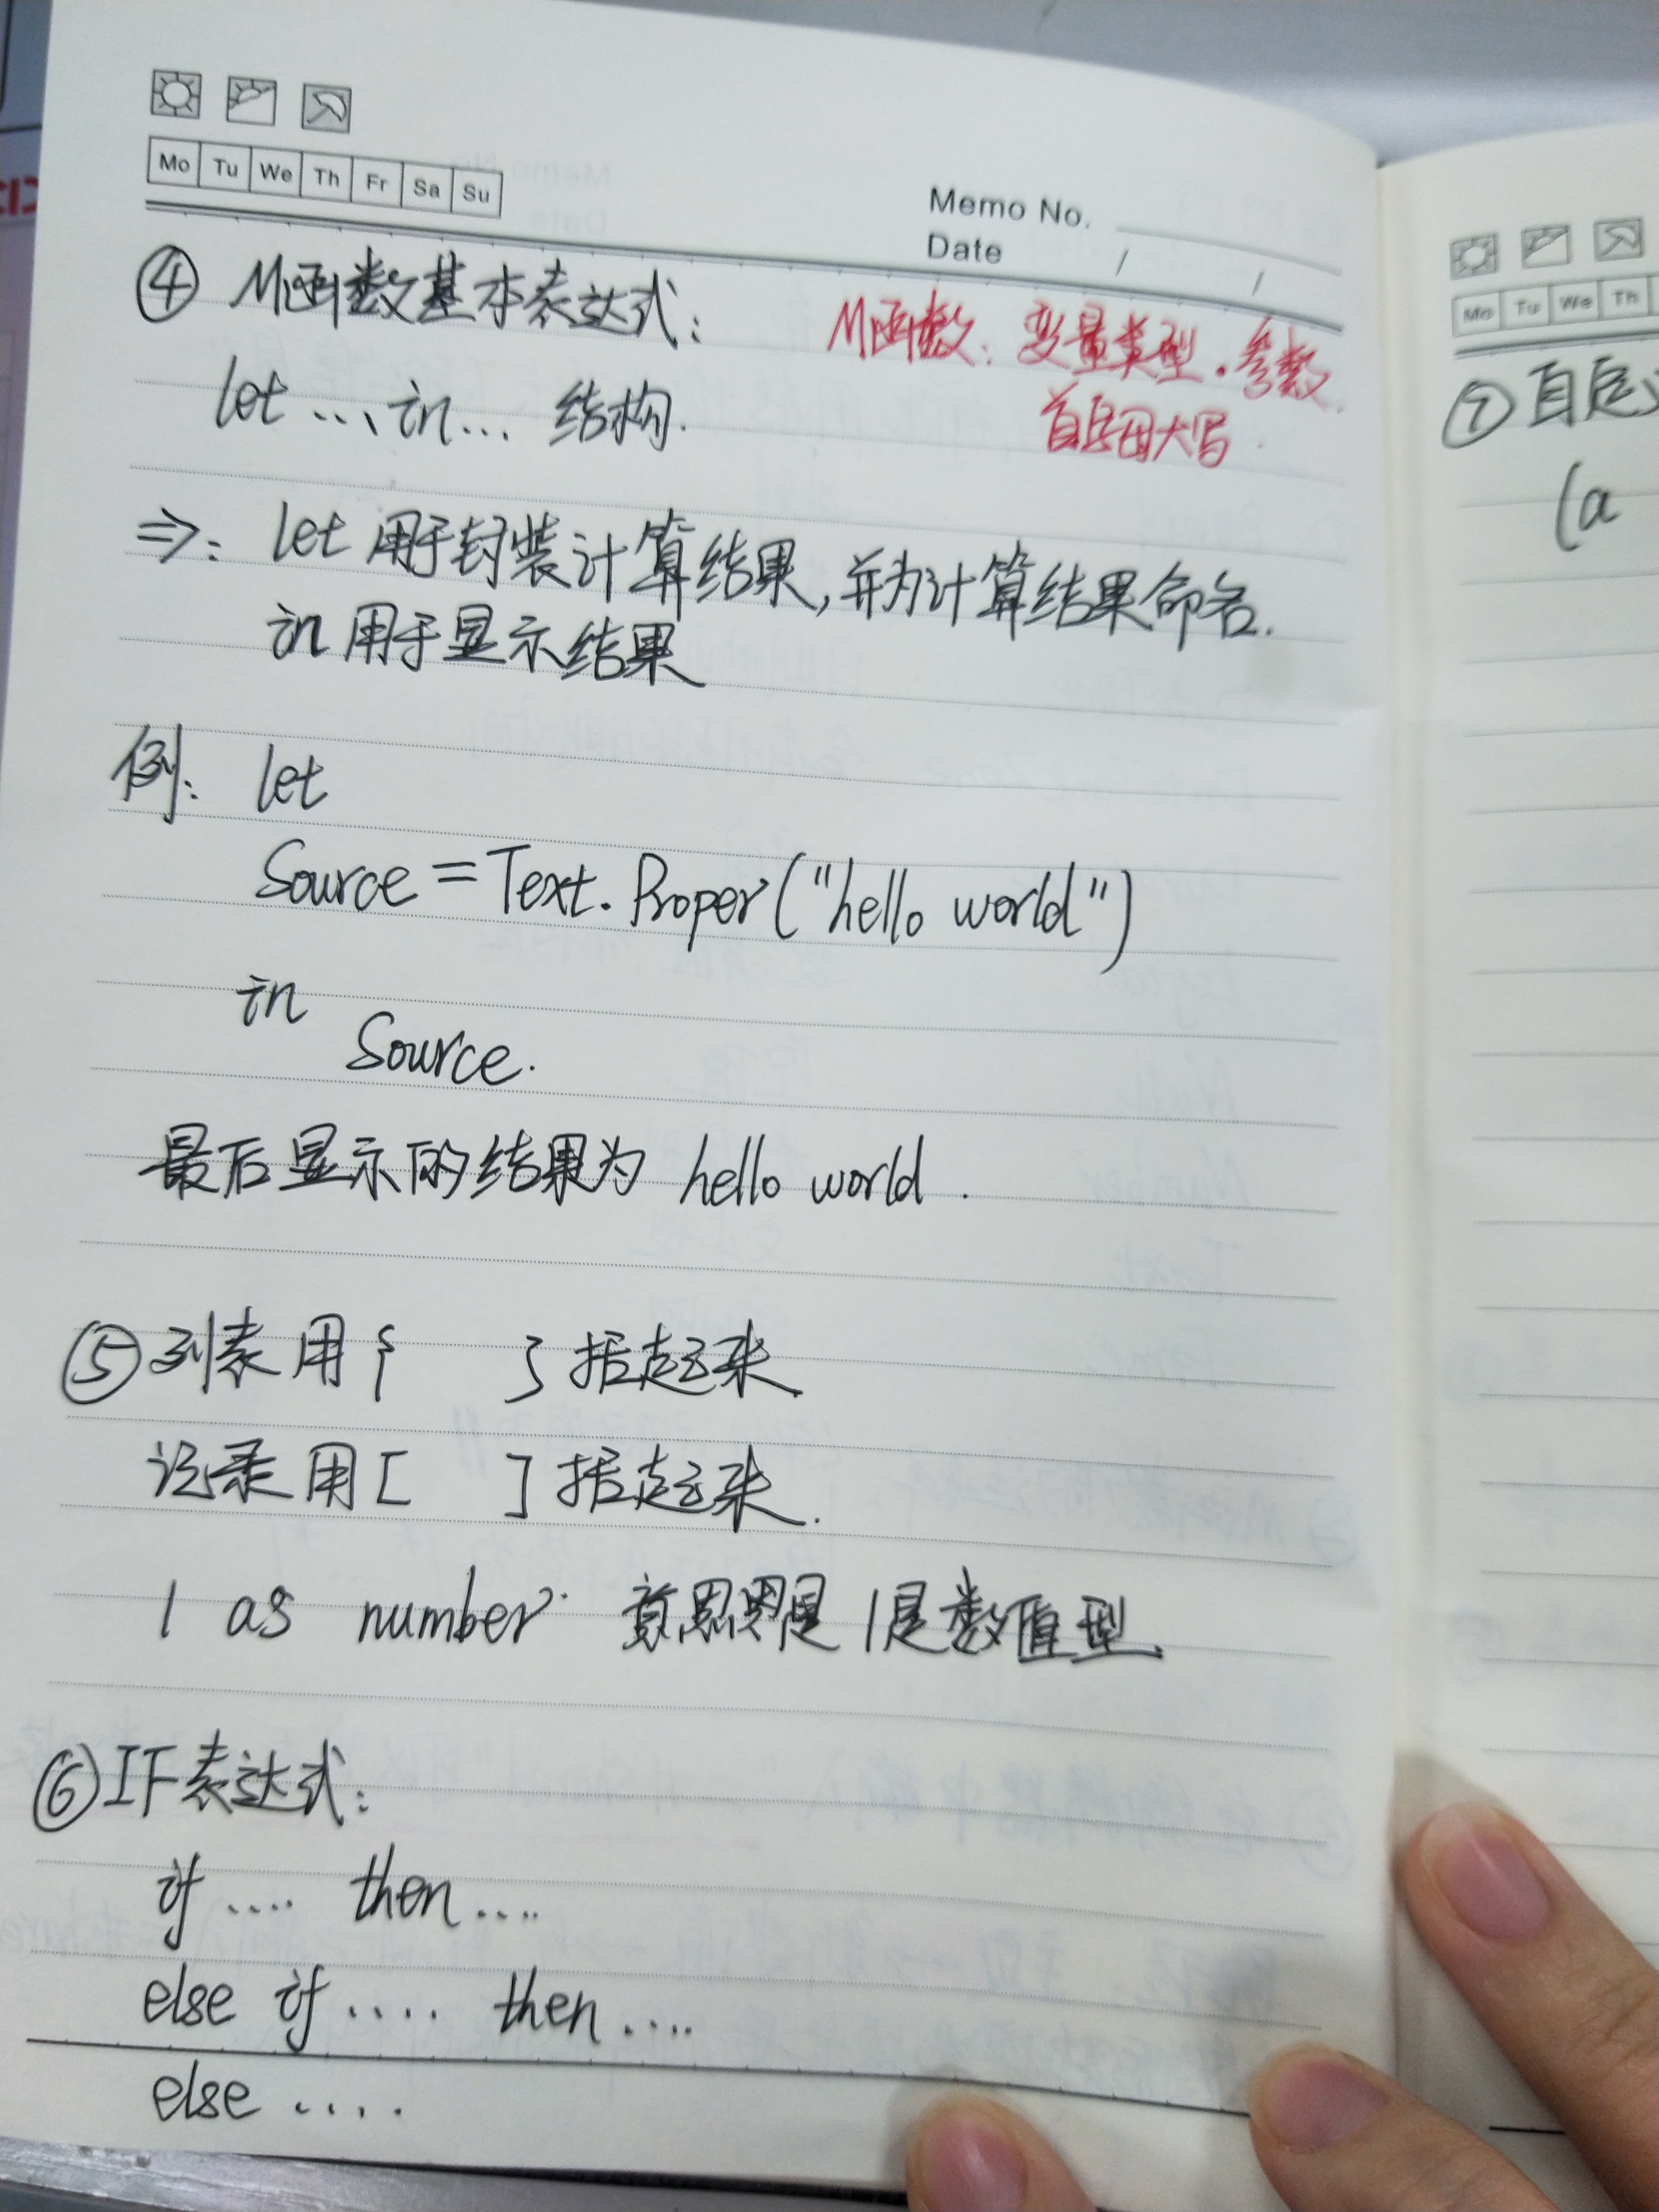 Mo Tu We Th Fr Sa Su
Memo No.
Date / /
④ M函数基本表达式:
M函数: 变量类型.参数
首字母大写
let ... in ... 结构.
⇒: let 用于封装计算结果,并为计算结果命名.
in 用于显示结果
例: let
Source = Text.Proper("hello world")
in
Source.
最后显示的结果为 hello world.
⑤ 列表用{ }括起来
记录用[ ]括起来.
1 as number 意思是 1是数值型
⑥ IF表达式:
if .... then ....
else if .... then ....
else ....
Mo Tu We Th
⑦ 自定
(a